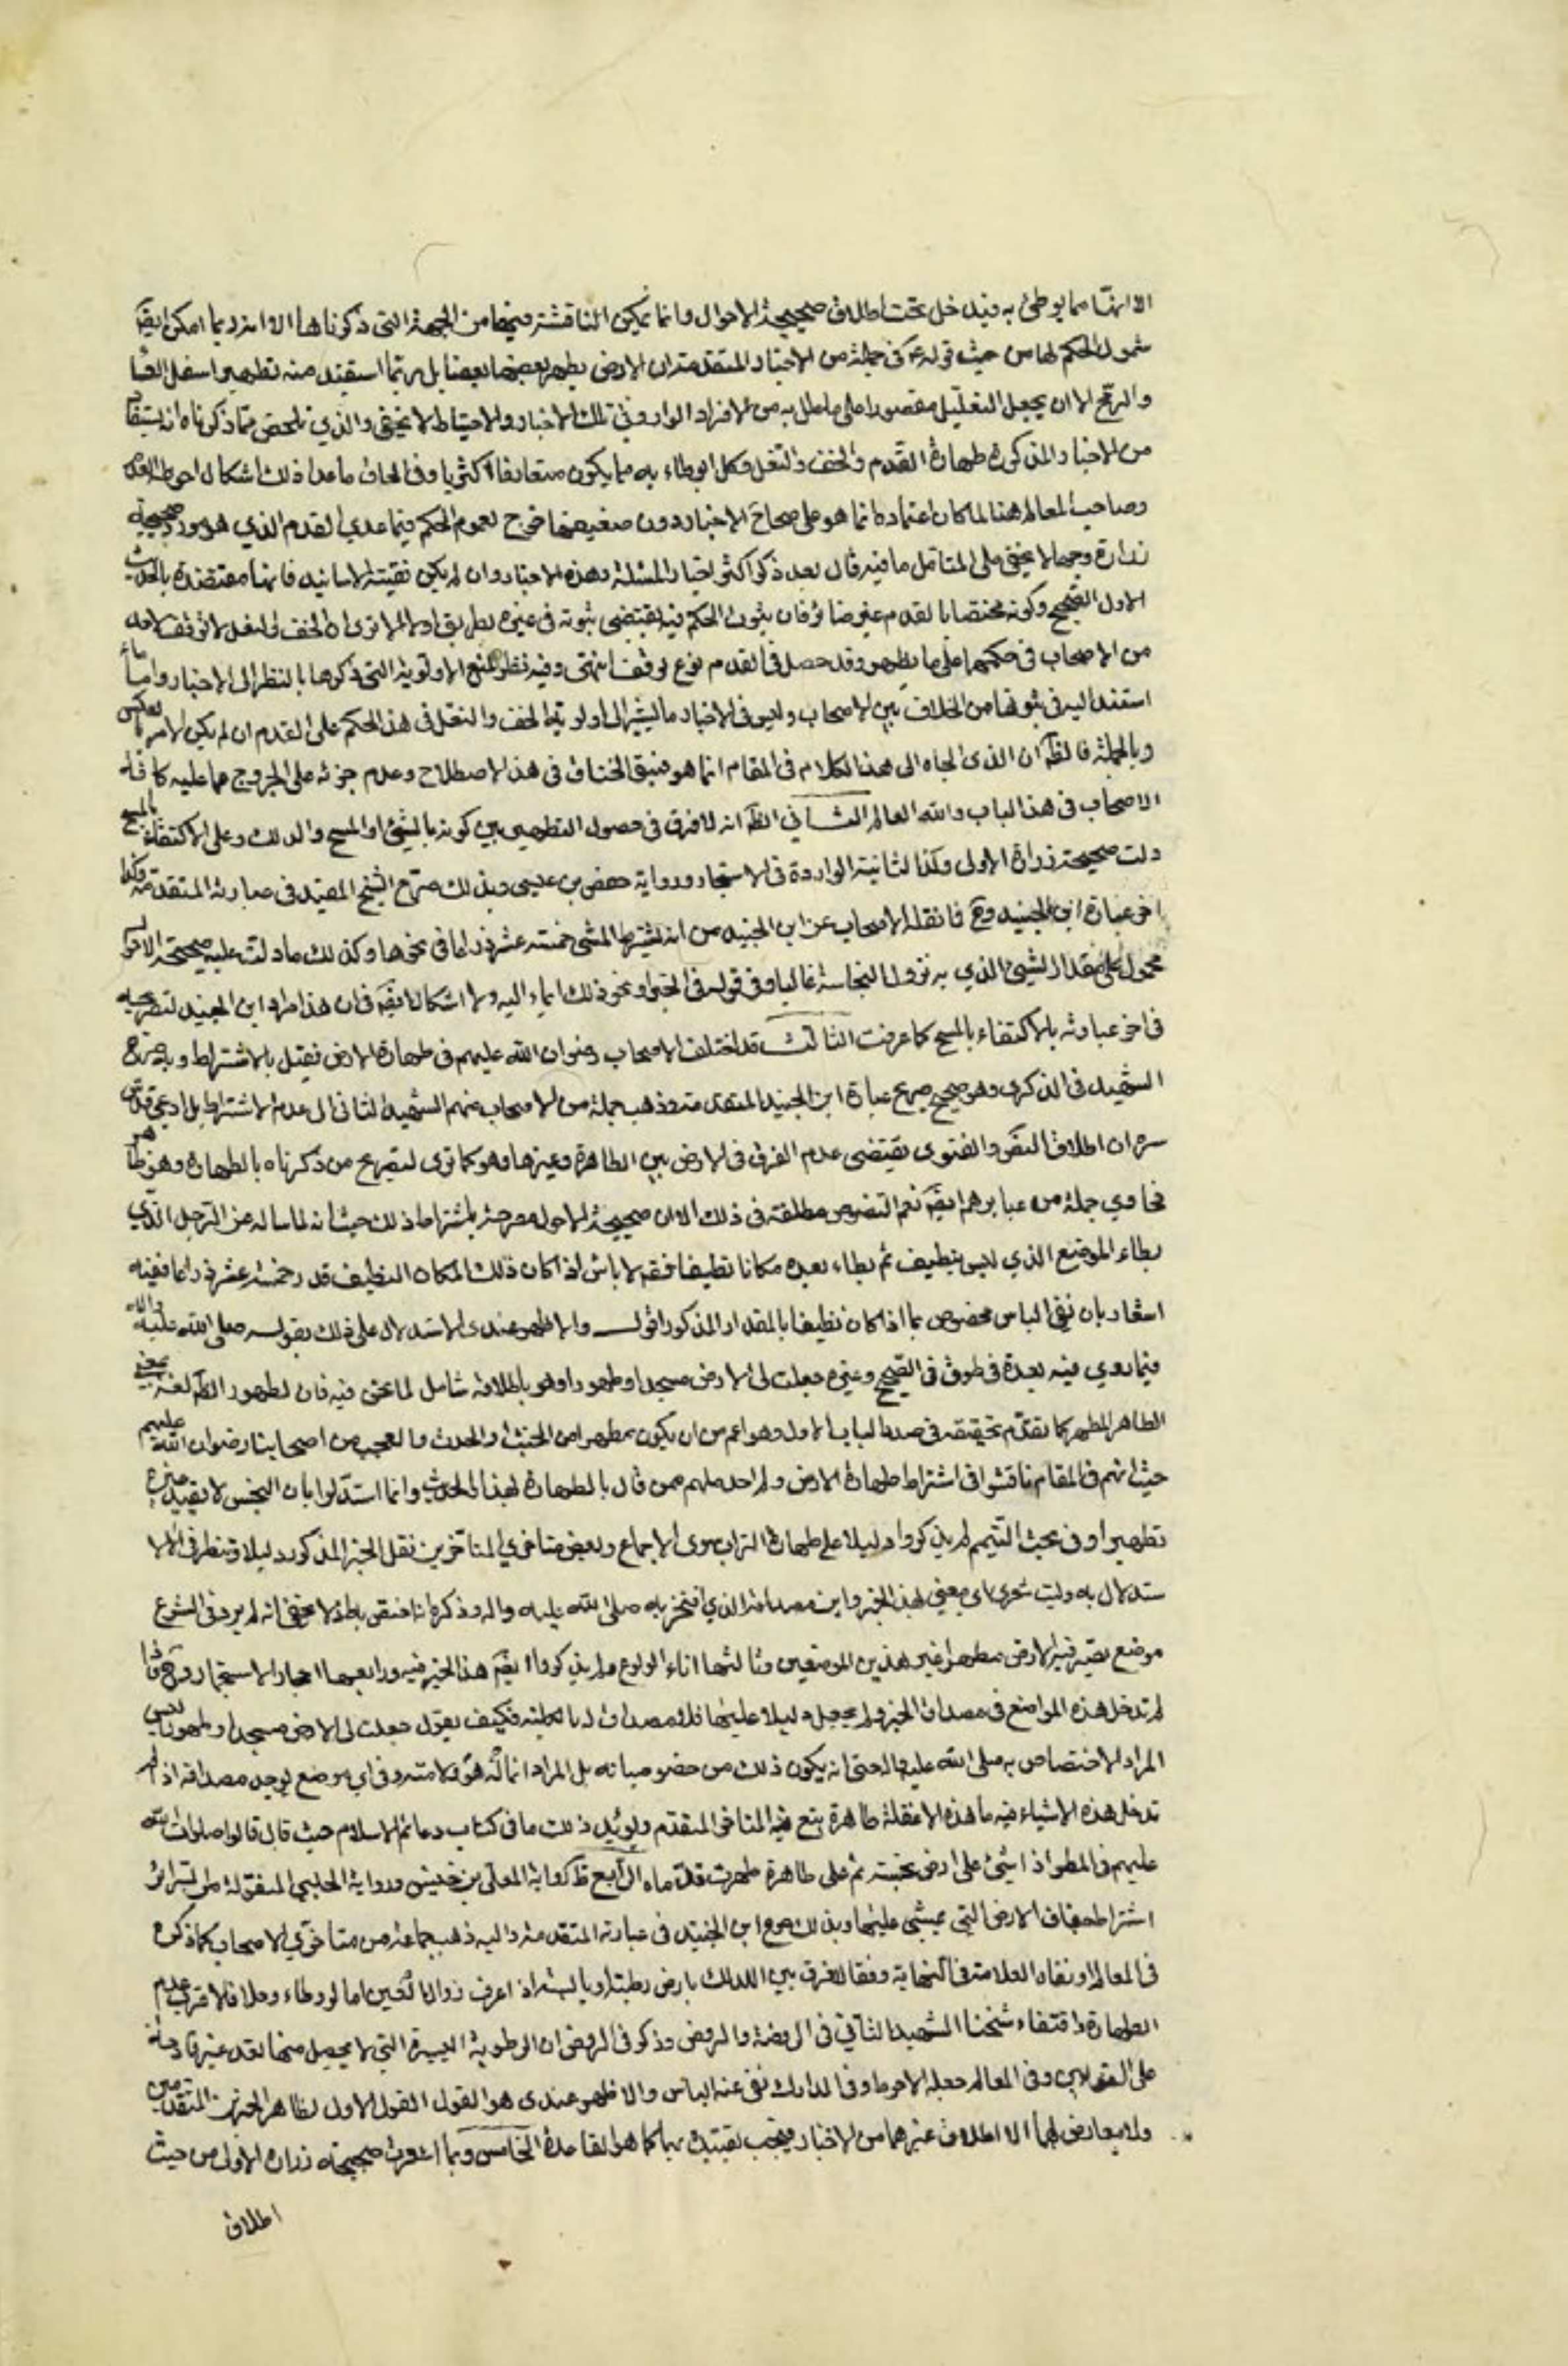 الا انها مما يوطئ به فيدخل تحت اطلاق صحيحة الاحوال وانما يمكن المناقشة فيها من الجهة التي ذكرناها الا انه ربما امكن ايضا
شمول الحكم لها من حيث قوله ع في جملة من الاخبار المتقدمة ان الارض يطهر بعضها بعضا بل ربما استفيد منه تطهير اسفل العصا
والرمح الا ان يجعل التعليل مقصورا على ما علل به من الافراد الوارد في تلك الاخبار والاحتياط لا يخفى والذي تلخص مما ذكرناه انه يستفاد
من الاخبار المذكورة طهارة القدم والخف والنعل وكل ما يوطاء به مما يكون متعارفا اكثريا وفي الحاق ما عدا ذلك اشكال احوطه العدم
وصاحب المعالم هنا لما كان اعتماده انما هو على صحاح الاخبار دون ضعيفها خرج لعموم الحكم فيما عدى القدم الذي هو مورد صحيحة
زرارة وجها لا يخفى على المتامل ما فيه قال بعد ذكر اكثر اخبار المسئلة وهذه الاخبار وان لم يكن نقية الاسانيد فانها معتضدة بالحديث
الاول الصحيح وكونه مختصا بالقدم غير ضائر فان ثبوت الحكم فيه يقتضي ثبوته في غيره بطريق اولى الا ترى ان الخف والنعل لا توقف لاحد
من الاصحاب في حكمهما على ما يظهر وقد حصل في القدم نوع توقف انتهى وفيه نظر لمنع الاولوية التي ذكرها بالنظر الى الاخبار واما ما
استند اليه في ثبوتها من الخلاف بين الاصحاب وليس في الاخبار ما يشير الى اولوية الخف والنعل في هذا الحكم على القدم ان لم يكن الامر بالعكس
وبالجملة فالظ ان الذي الجاه الى هذا الكلام في المقام انما هو ضيق الخناق في هذا الاصطلاح وعدم جرئه على الخروج عما عليه كافة
الاصحاب في هذا الباب والله العالم الثاني الظ انه لا فرق في حصول التطهير بين كونه بالمشئ او المسح والدلك وعلى الاكتفاء بالمسح
دلت صحيحة زرارة الاولى وكذا الثانية الواردة في الاستنجار ورواية حفص بن عيسى وبذلك صرح الشيخ المفيد في عبارته المتقدمة وكذا
اخر عبارة ابن الجنيد وح فما نقله الاصحاب عن ابن الجنيد من انه يشترط المشى خمسة عشر ذراعا في نحوها وكذلك ما دلت عليه صحيحة الاحول
محمول على مقدار المشئ الذي به تزول النجاسة غاليا وفي قوله في الخبر او نحو ذلك ايماء اليه ولا اشكال ايضا في ان هذا مراد ابن الجنيد لتصريحه
في اخر عبارته بالاكتفاء بالمسح كما عرفت الثالث قد اختلف الاصحاب رضوان الله عليهم في طهارة الارض فقيل بالاشتراط وبه صرح
الشهيد في الذكرى وهو صحيح صريح عبارة ابن الجنيد المتقدمة وذهب جملة من الاصحاب منهم الشهيد الثاني الى عدم الاشتراط بل ادعى قدس
سره ان اطلاق النص والفتوى يقتضي عدم الفرق في الارض بين الطاهرة وغيرها وهو كما ترى لتصريح من ذكرناه بالطهارة وهو ظاهر
فحاوي جملة من عبايرهم ايضا نعم النصوص مطلقة في ذلك الا ان صحيحة الاحول مصرحة باشتراط ذلك حيث انه لما ساله عن الرجل الذي
يطاء الموضع الذي ليس بنظيف ثم يطاء بعده مكانا نظيفا فقه لا باس اذا كان ذلك المكان النظيف قدر خمسة عشر ذراعا ففيه
اشعار بان نفي الباس مخصوص بما اذا كان نظيفا بالمقدار المذكور اقول والاظهر عندى الاستدلال على ذلك بقوله صلى الله عليه واله
فيما روي فيه بعدة طرق في الصحيح وغيره جعلت لي الارض مسجدا وطهورا وهو باطلاقه شامل لما نحن فيه فان الطهور الظ لغة بمعنى
الطاهر المطهر كما تقدم تحقيقه في صدر الباب الاول وهو اعم من ان يكون مطهرا من الخبث او الحدث والعجب من اصحابنا رضوان الله عليهم
حيث انهم في المقام ناقشوا في اشتراط طهارة الارض ولم احد منهم ممن قال بالطهارة لهذا الحديث وانما استدلوا بان النجس لا يفيد غيره
تطهيرا وفي بحث التيمم لم يذكروا دليلا على طهارة التراب سوى الاجماع وبعض متاخري المتاخرين نقل الخبر المذكور دليلا وتنظر في الا
ستدلال به وليت شعري اي معنى لهذا الخبر واين مصداقه الذي افتخر به صلى الله عليه واله وذكره انه اختص به اذ لا يخفى انه لم يرد في الشرع
موضع يصير فيه الارض مطهرا غير هذين الموضعين وثالثها اناء الولوغ ولم يذكروا ايضا هذا الخبر فيه ورابعها احجار الاستجمار وح فاذا
لم تدخل هذه المواضع في مصداق الخبر ولم يجعل دليلا عليها فلا مصداق له بالكلية فكيف يقول جعلت لي الارض مسجدا وطهورا وليس
المراد الاختصاص به صلى الله عليه واله حتى انه يكون ذلك من خصوصياته بل المراد انما له هو ولامته وفي اي موضع يوجد مصداقه اذا لم
تدخل هذه الاشياء فيه ما هذه الا غفلة ظاهرة تبع فيها المتاخر المتقدم ويؤيد ذلك ما في كتاب دعائم الاسلام حيث قال قالوا صلوات الله
عليهم في المطر اذا مشئ على ارض نجسة ثم على طاهرة طهرت قدماه الرابع ظ رواية المعلى بن خنيس ورواية الحلبي المنقولة من السرائر
اشتراط جفاف الارض التي يمشي عليها وبذلك صرح ابن الجنيد في عبارته المتقدمة واليه ذهب جماعة من متاخري الاصحاب كما ذكره
في المعالم ونفاه العلامة في النهاية وفقا لا فرق بين الدلك بارض رطبة او يابسة اذ اعرف زوال العين اما لو وطاء وحلا فلا قرب عدم
الطهارة واقتفاه شيخنا الشهيد الثاني في الروضة والروض وذكر في الروض ان الرطوبة اليسيرة التي لا يحصل منها تعد غير قادحة
على القولين وفي المعالم جعله الاحوط وفي المدارك نفى عنه الباس والاظهر عندى هو القول القول الاول لظاهر الخبرين المتقدمين
ولا معارض لهما الا اطلاق غيرهما من الاخبار فيجب تقييده بهما كما هو القاعدة الخامس ربما اشعرت صحيحة زرارة الاولى من حيث
اطلاق